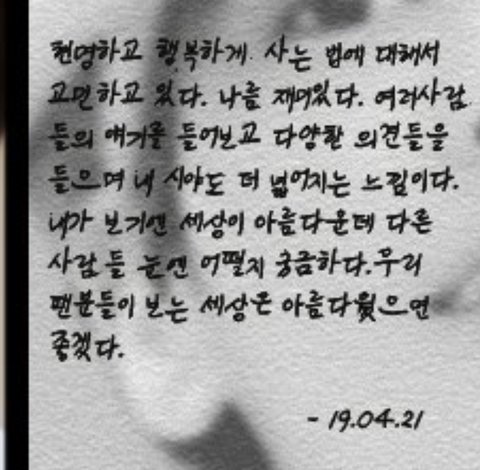 현명하고 행복하게 사는 법에 대해서
고민하고 있다. 나름 재미있다. 여러사람
들의 얘기를 들어보고 다양한 의견들을
들으며 내 시야도 더 넓어지는 느낌이다.
내가 보기엔 세상이 아름다운데 다른
사람들 눈엔 어떨지 궁금하다. 우리
팬분들이 보는 세상은 아름다웠으면
좋겠다.
- 19.04.21